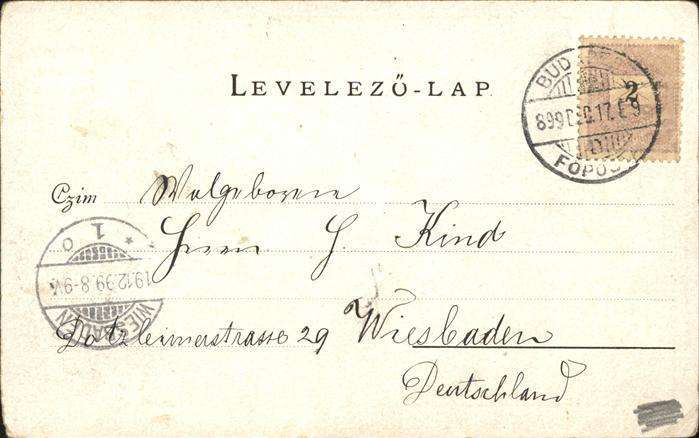 LEVELEZŐ-LAP
2
BUDAPEST
899 DEC. 17. E. 9
FŐPOSTA
Czim Wolgeboren
Herrn H. Kind
1
19.12.99. 8-9V.
WIESBADEN
Dotzheimerstrasse 29 Wiesbaden
Deutschland